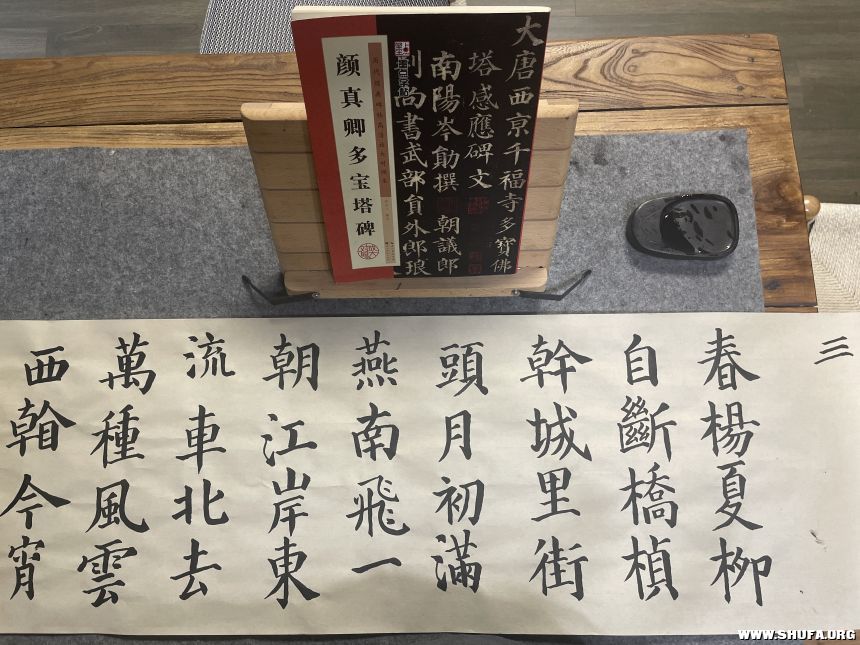 大唐西京千福寺多寶佛
塔感應碑文
南陽岑勛撰 朝議郎
判尚書武部貟外郎琅
颜真卿多宝塔碑
三
春楊夏柳
自斷橋楨
幹城里街
頭月初滿
燕南飛一
朝江岸東
流車北去
萬種風雲
西今宵
WWW.SHUFA.ORG